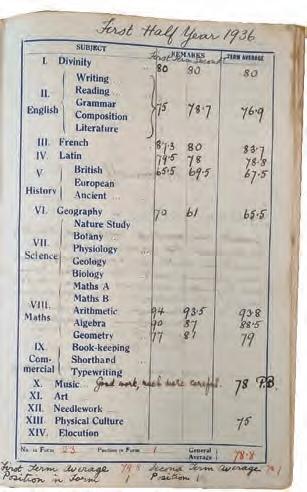 First Half Year 1936
SUBJECT First Term Second REMARKS TERM AVERAGE
I. Divinity 80 80 80
Writing
II. Reading
English Grammar 75 78.7 76.9
Composition
Literature
III. French 87.3 80 83.7
IV. Latin 79.5 78 78.8
V. British 65.5 69.5 67.5
History European
Ancient
VI. Geography 70 61 65.5
Nature Study
VII. Botany
Science Physiology
Geology
Biology
Maths A
Maths B
VIII. Arithmetic 94 93.5 93.8
Maths Algebra 90 87 88.5
Geometry 77 81 79
IX. Book-keeping
Commercial Shorthand
Typewriting
X. Music Good work, much more careful. 78 P.B.
XI. Art
XII. Needlework
XIII. Physical Culture 75
XIV. Elocution
No. in Form 23 Position in Form 1 General Average 78.8
First Term Average Second Term average
Position in Form 1 Position 1